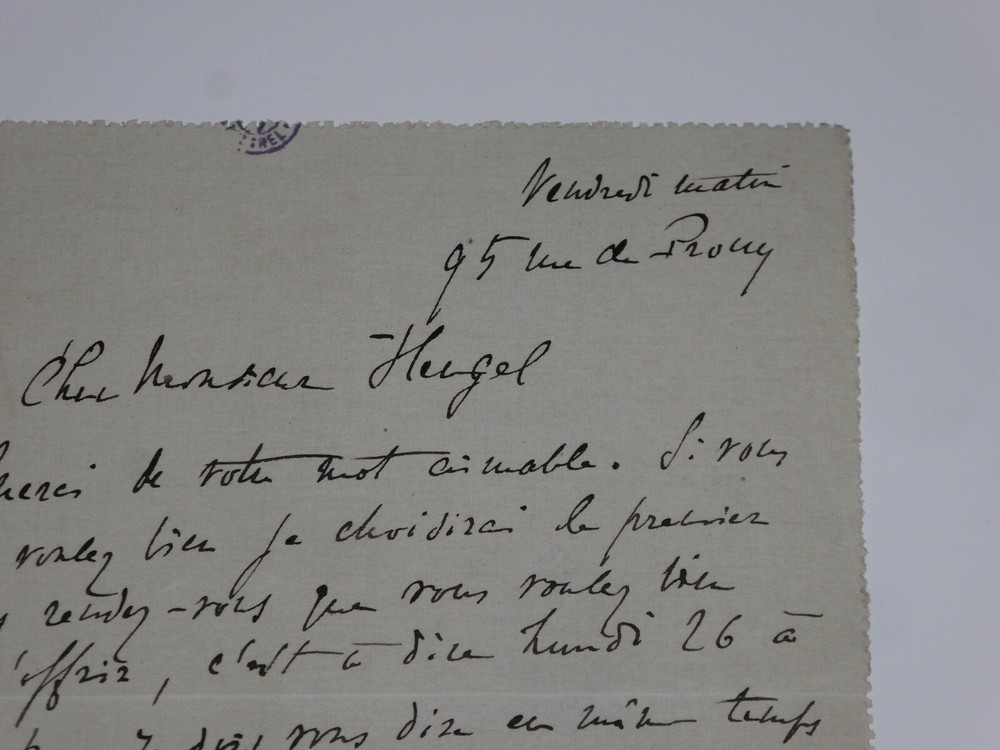 Vendredi matin
95 rue de Prony
Cher Monsieur Heugel
merci de votre mot aimable. Si vous
voulez bien je choisirai le premier
rendez-vous que vous voulez bien
m'offrir, c'est à dire lundi 26 à
dois vous dire en même temps